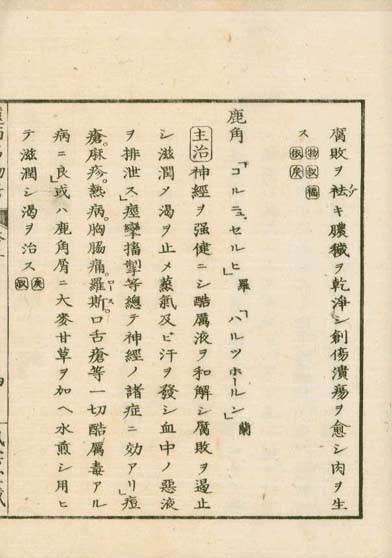 腐敗ヲ祛キ膿穢ヲ乾淨シ創傷潰瘍ヲ愈シ肉ヲ生
ス
鹿角「コルニュ、セルヒ」羅「ハルツホールン」蘭
主治神經ヲ强健ニシ酷厲液ヲ和解シ腐敗ヲ遏止
シ滋潤メ渴ヲ止メ蒸氣及ヒ汗ヲ發シ血中ノ惡液
ヲ排泄ス」痙攣搐掣等總テ神經ノ諸症ニ効アリ」痘
瘡。麻疹。熱病。胸腸痛。羅斯。口舌瘡等一切酷厲毒アル
病ニ良」或ハ鹿角屑ニ大麥甘草ヲ加ヘ水煎シ用ヒ
テ滋潤シ渴ヲ治ス